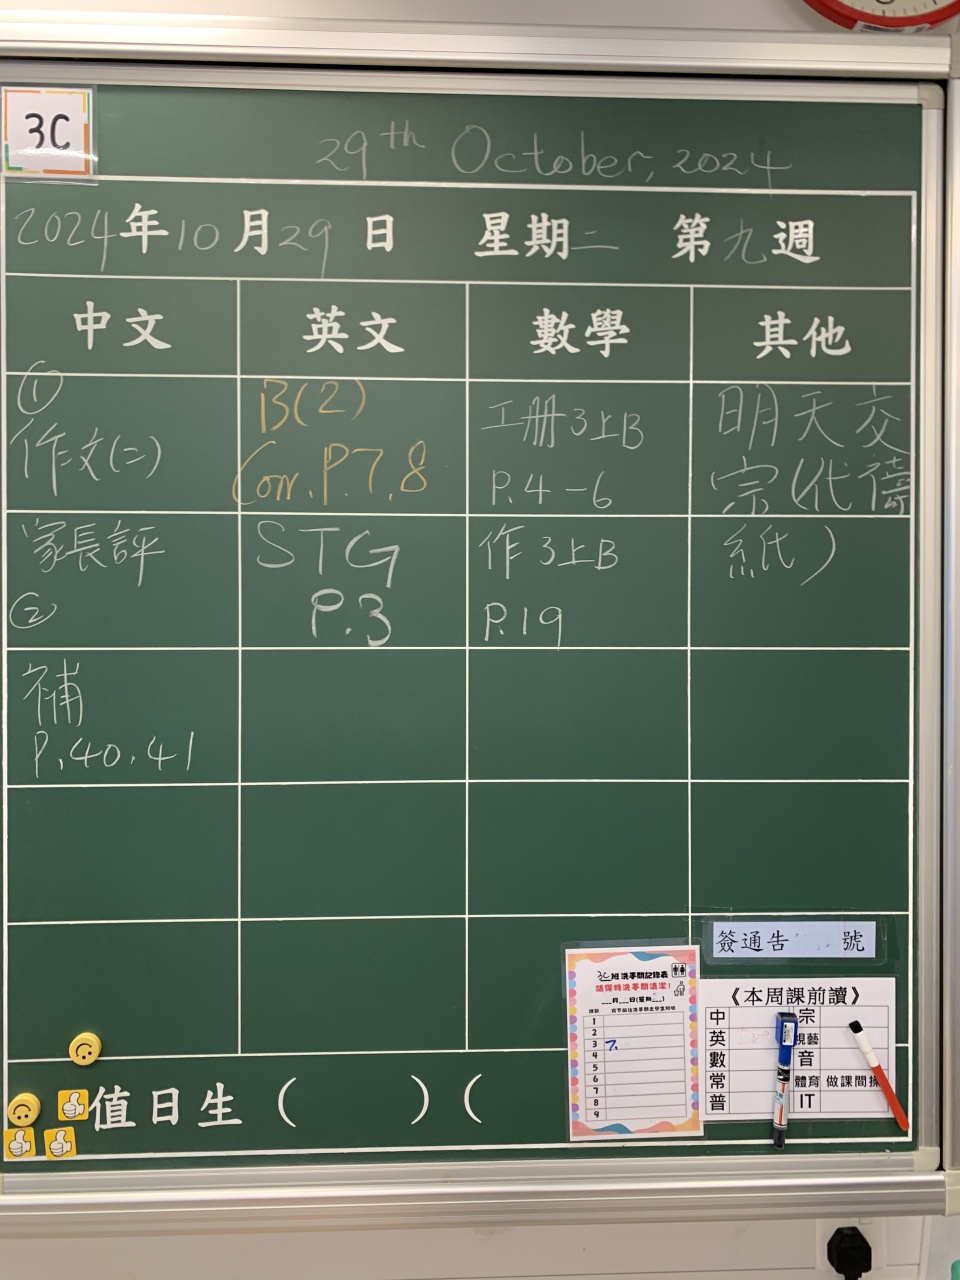 3C
29th October, 2024
2024年10月29日 星期二 第九週
中文 英文 數學 其他
①
作文(二)
家長評
②
補
P.40,41
B(2)
Corr. P.7,8
STG
P.3
工册3上B
P.4-6
作3上B
P.19
明天交
宗(代禱
紙)
簽通告 號
3C班洗手間記錄表
請保持洗手間清潔!
___月___日(星期___)
1
2
3 7.
4
5
6
7
8
9
《本周課前讀》
中 宗
英 視藝
數 音
常 體育 做課間操
普 IT
值日生 ( ) (